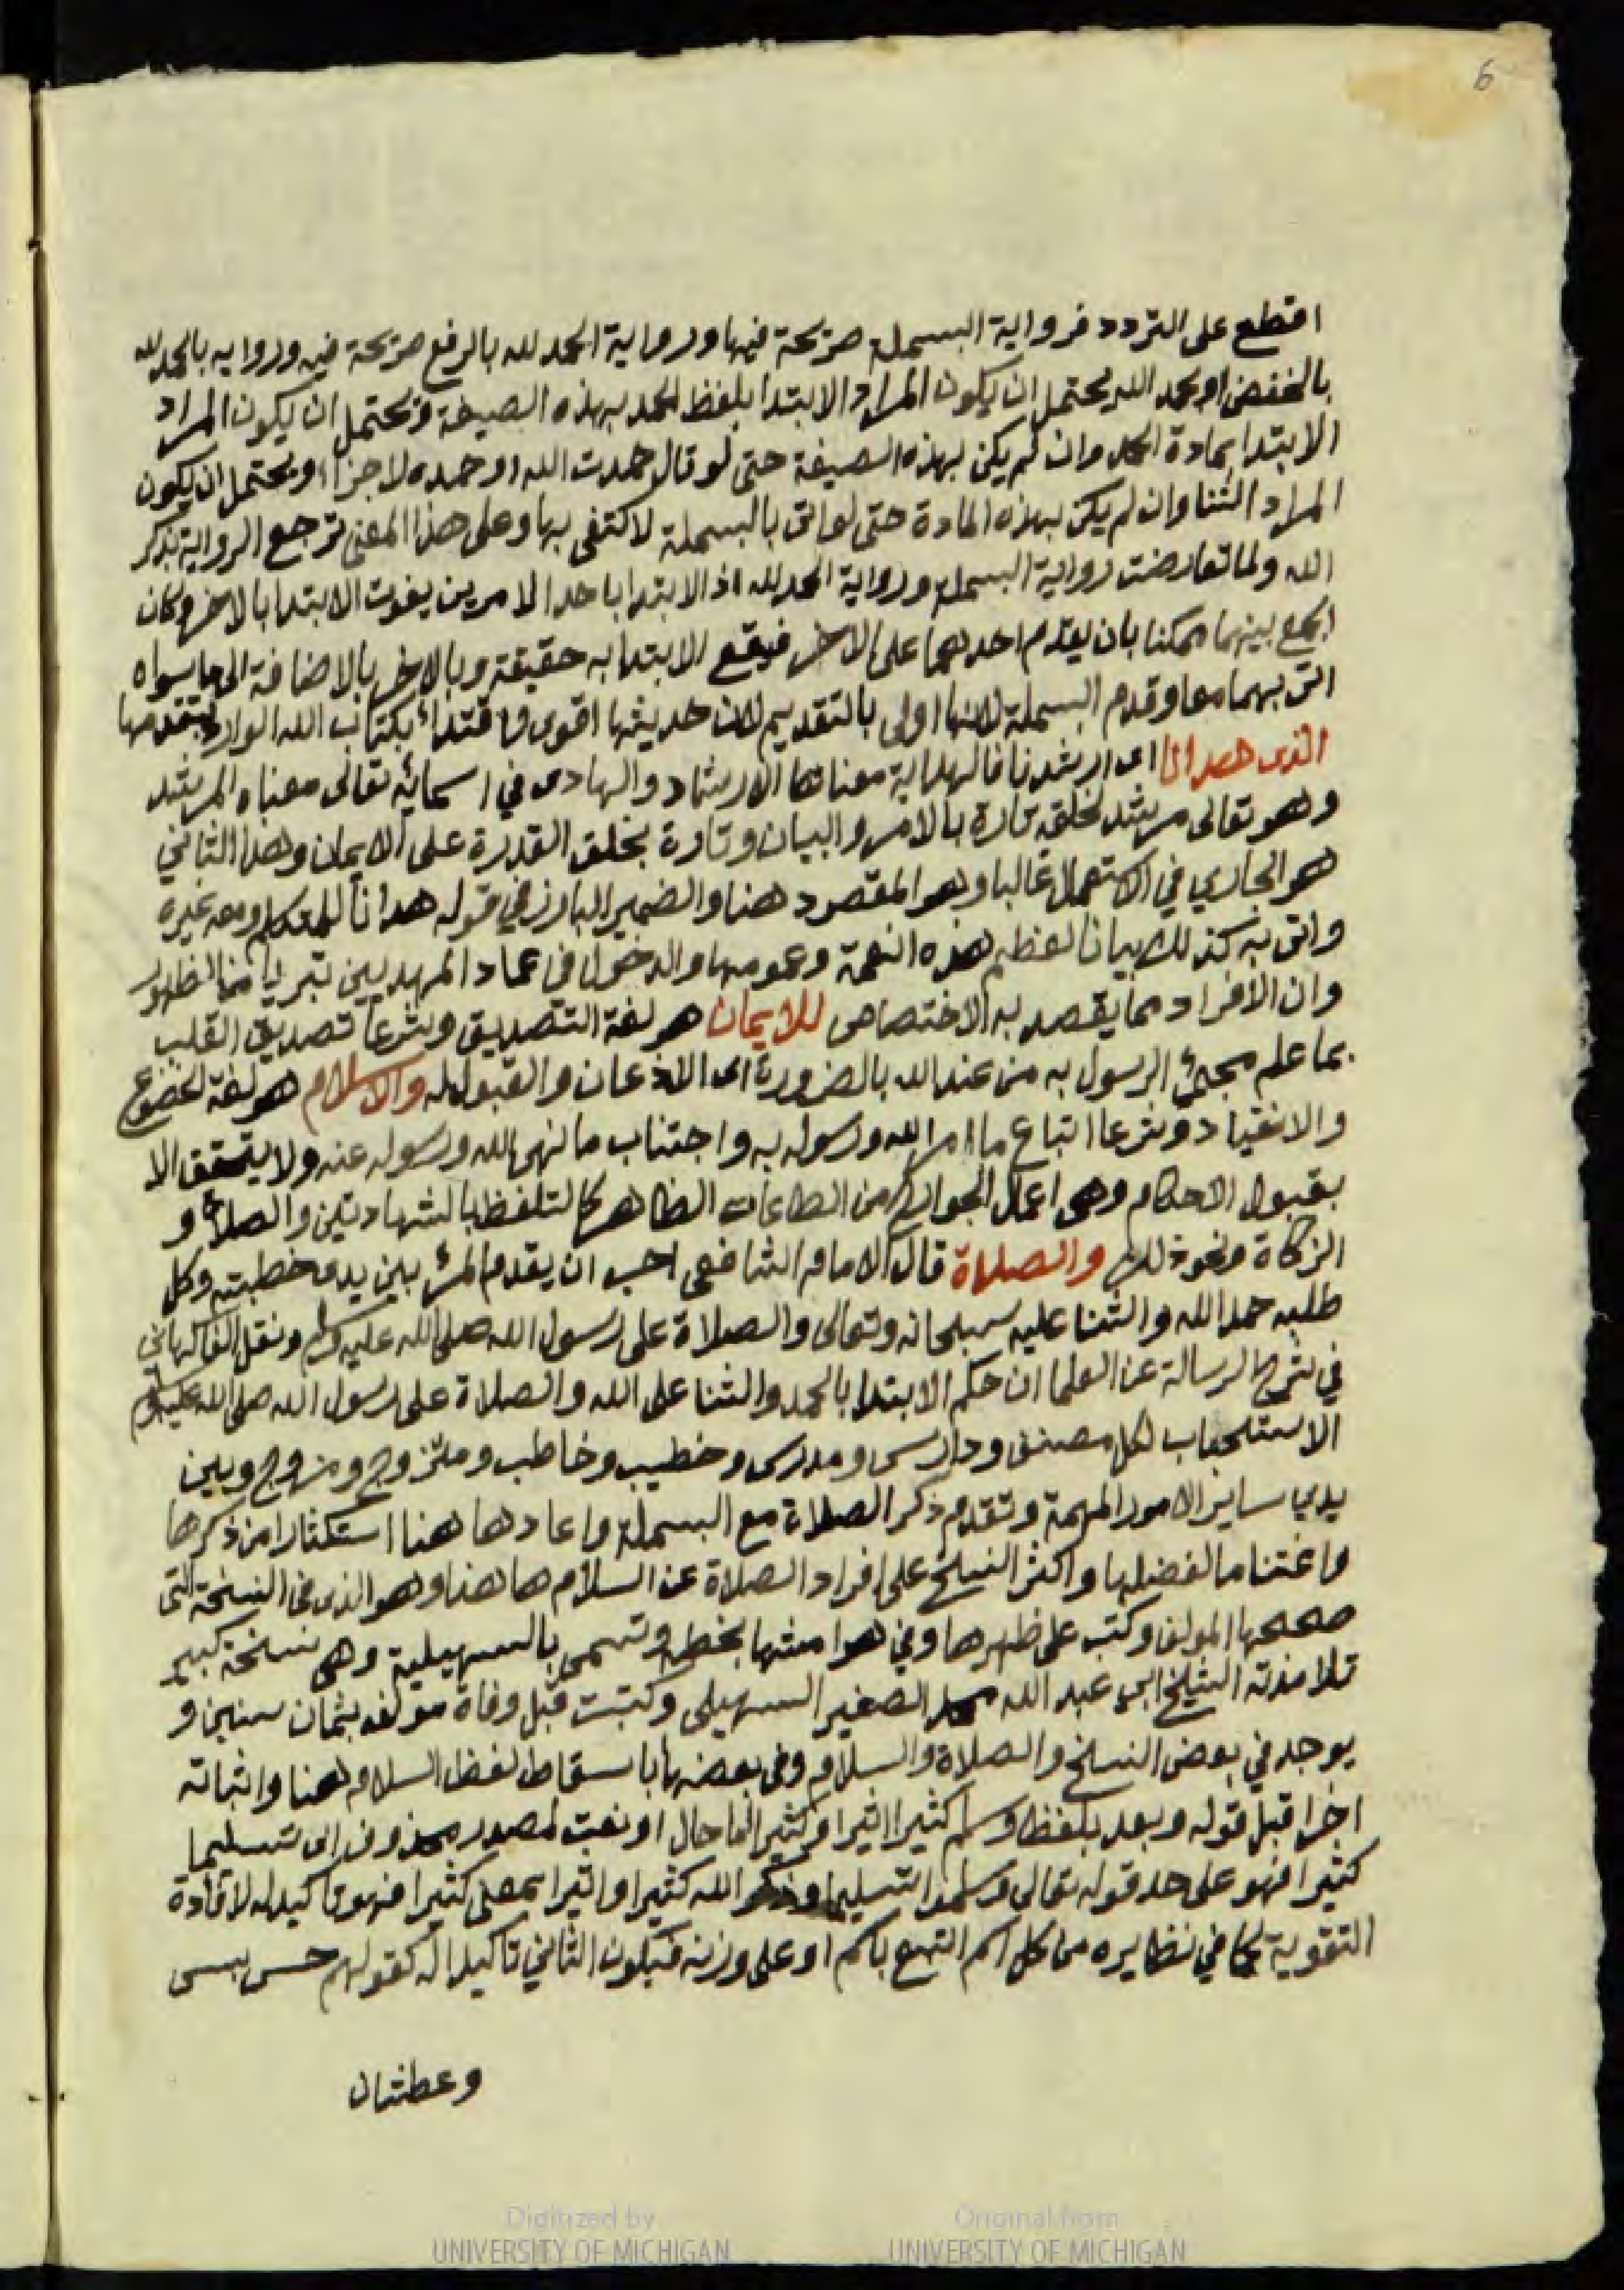 6
اقطع على التردد فرواية البسملة صريحة فيها ورواية الحمد لله بالرفع صريحة فيه ورواية بالحمد لله
بالخفض او بحمد الله يحتمل ان يكون المراد الابتدا بلفظ الحمد بهذه الصيغة ويحتمل ان يكون المراد
الابتدا بمادة الحمد وان لم يكن بهذه الصيغة حتى لو قال حمدت الله او حمده لاجزأ ويحتمل ان يكون
المراد الثنا وان لم يكن بهذه المادة حتى لو اتى بالبسملة لاكتفى بها وعلى هذا المعنى ترجع الرواية بذكر
الله ولما تعارضت رواية البسملة ورواية الحمد لله اذ الابتدا باحد الامرين يفوت الابتدا بالاخر وكان
الجمع بينهما ممكنا بان يقدم احدهما على الاخر فيقع الابتدا به حقيقة وبالاخر بالاضافة الى ما سواه
اتى بهما معا وقدم البسملة لانها اولى بالتقديم لان حديثها اقوى واقتداء بكتاب الله الوارد بتقدمها
الذى هدانا اى ارشدنا فالهداية معناها الارشاد والهادى في اسمائه تعالى معناه المرشد
وهو تعالى مرشد لخلقه تارة بالامر والبيان وتارة بخلق القدرة على الايمان وهذا الثاني
هو الجاري في الاستعمال غالبا وهو المقصود هنا والضمير البارز في قوله هدانا للمتكلم ومعه غيره
واتى به كذلك بيانا لعظم هذه النعمة وعمومها والدخول في عماد المهديين تبريا من الظهور
وان الافراد مما يقصد به الاختصاص للايمان هو لغة التصديق وشرعا تصديق القلب
بما علم مجيئ الرسول به من عند الله بالضرورة اى الاذعان والقبول له والاسلام هو لغة الخضوع
والانقياد وشرعا اتباع ما امر الله ورسوله به واجتناب ما نهى الله ورسوله عنه ولا يتحقق الا
بقبول الاحكام وهى اعمال الجوارح من الطاعات الظاهرة كالتلفظ بالشهادتين والصلاة و
الزكاة ونحو ذلك والصلاة قال الامام الشافعى احب ان يقدم المرء بين يدى خطبته وكل
طلبه حمد الله والثنا عليه سبحانه وتعالى والصلاة على رسول الله صلى الله عليه وسلم ونقل الفاكهاني
في شرح الرسالة عن العلما ان حكم الابتدا بالحمد والثنا على الله والصلاة على رسول الله صلى الله عليه وسلم
الاستحباب لكل مصنف ودارس ومدرس وخطيب وخاطب ومتزوج ومزوج وبين
يدي ساير الامور المهمة وتقدم ذكر الصلاة مع البسملة واعادها هنا استكثارا من ذكرها
واغتناما لفضلها واكثر النسخ على افراد الصلاة عن السلام هاهنا وهو الذى في النسخة التى
صححها المولف وكتب على ظهرها وفي هوامشها بخطه وتسمى بالسهيلية وهى نسخة كبير
تلامذته الشيخ ابى عبد الله محمد الصغير السهيلى وكتبت قبل وفاة مولفه بثمان سنين و
يوجد في بعض النسخ والصلاة والسلام وفى بعضها باسقاط لفظ السلام هنا واثباته
اخرا قبل قوله وبعد بلفظ وسلم كثيرا اثيرا وكثيرا اما حال او نعت لمصدر محذوف اى تسليما
كثيرا فهو على حد قوله تعالى وسلموا تسليما الله كثيرا واثيرا بمعنى كثيرا فهو تاكيد له لافادة
التقوية كما في نظايره من كل اسم اتبع باسم او على وزنه فيكون الثاني تاكيدا له كقولهم حسن بسن
وعطشان
Digitized by
UNIVERSITY OF MICHIGAN
Original from
UNIVERSITY OF MICHIGAN